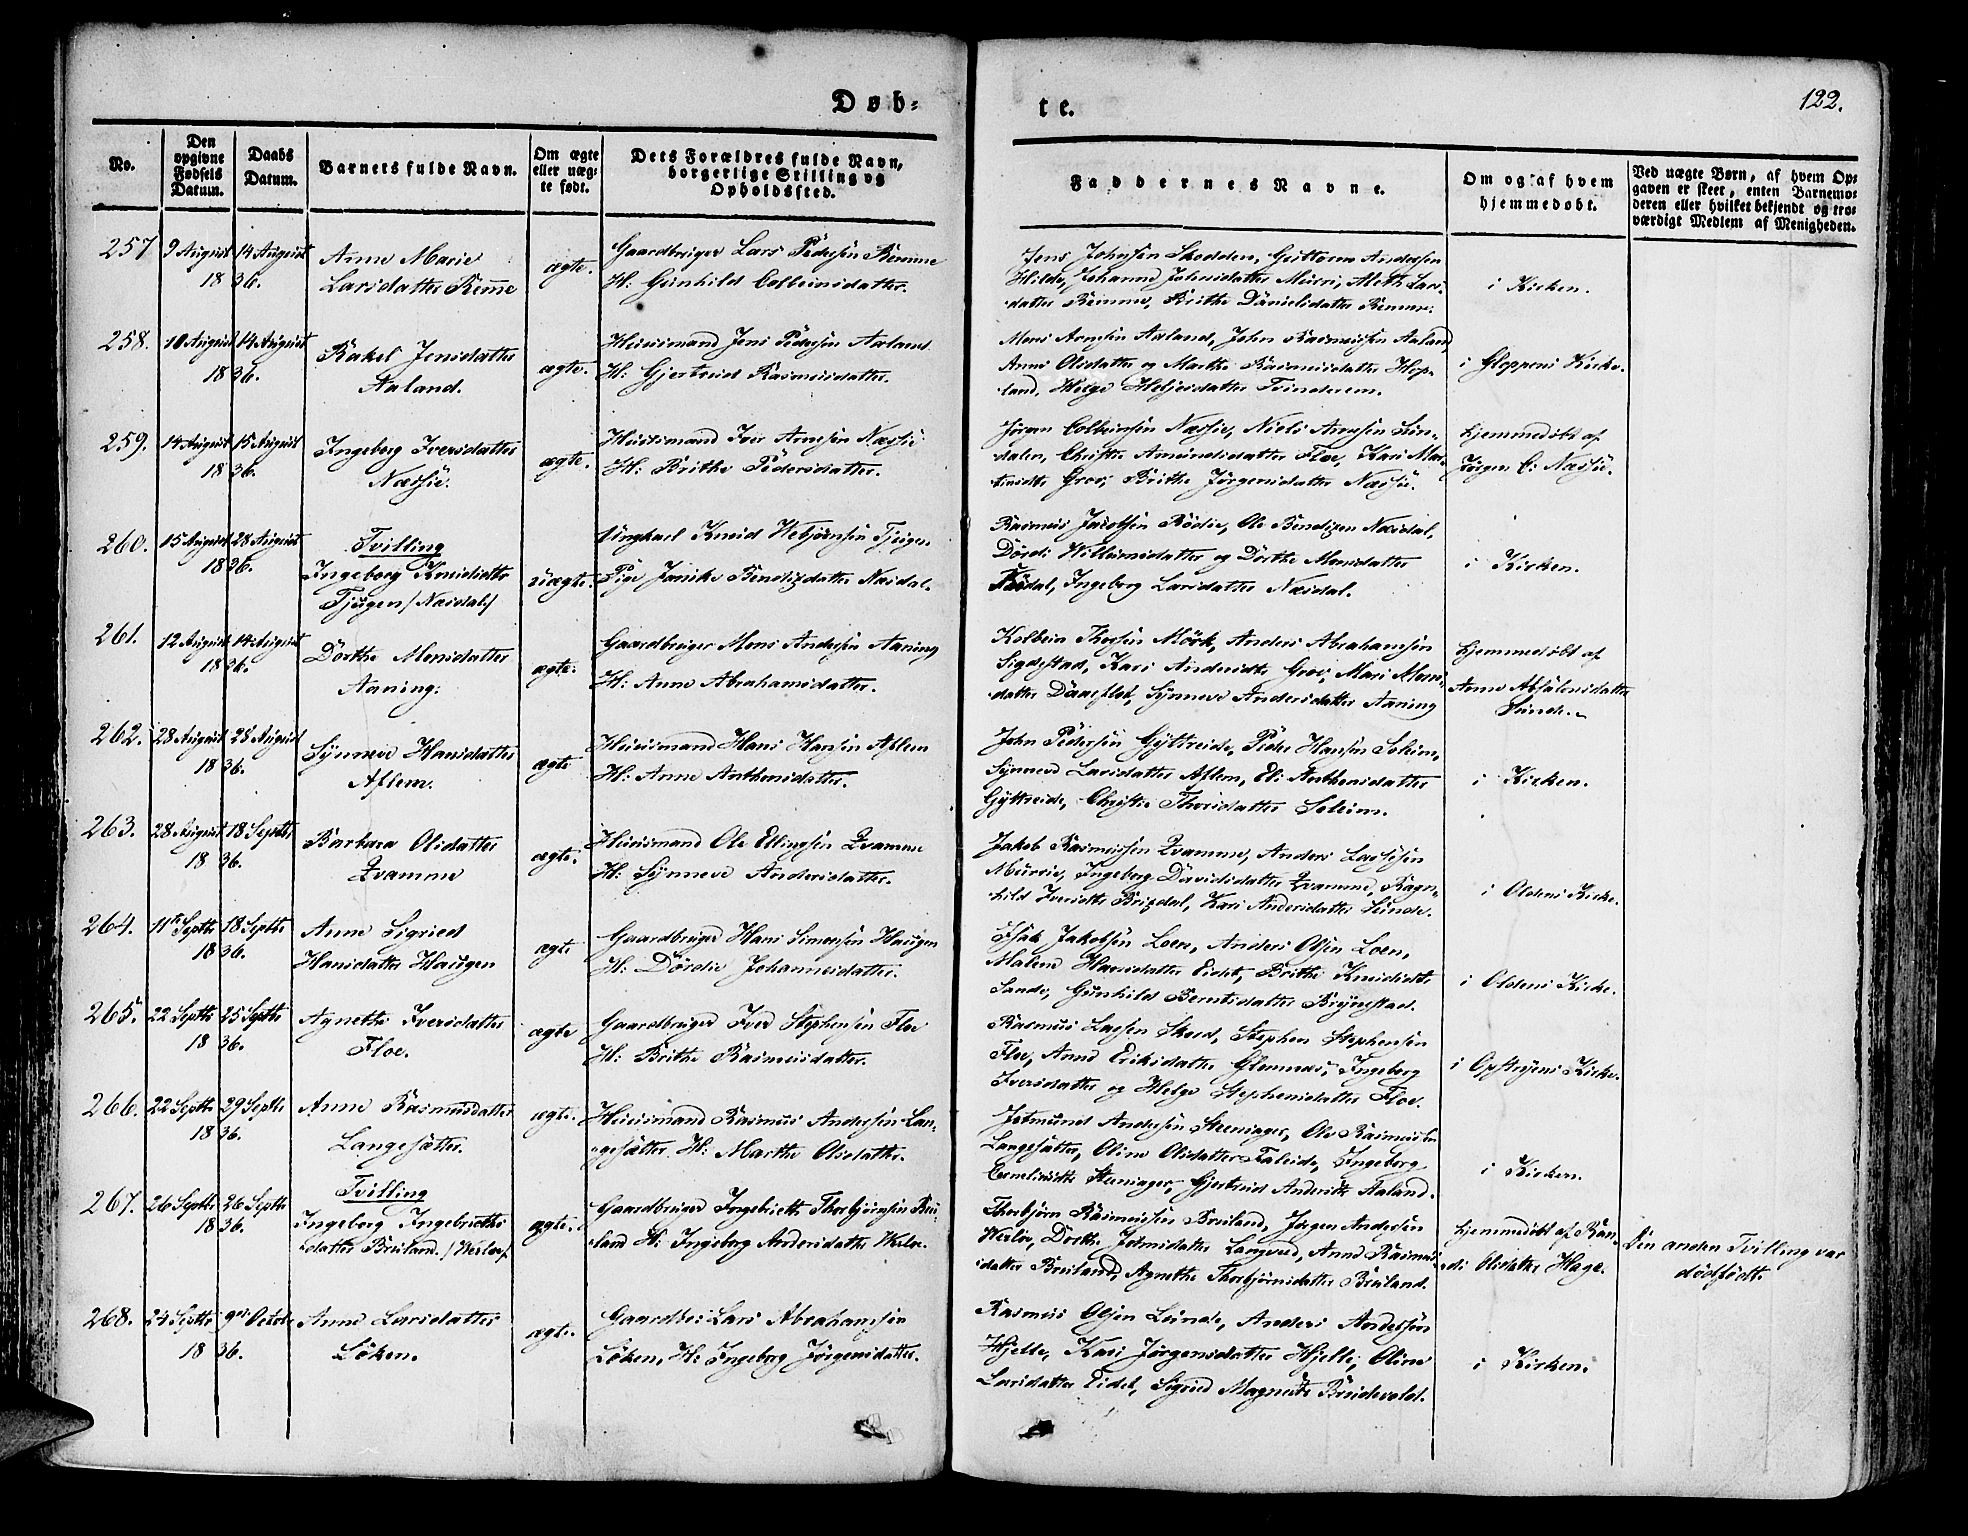 Døb-
te.
122.
No.
Den
opgivne
Fødsels
Datum.
Daabs
Datum.
Barnets fulde Navn.
Om ægte
eller uæg-
te født.
Dets Forældres fulde Navn,
borgerlige Stilling og
Opholdssted.
Faddernes Navne.
Om og af hvem
hjemmedøbt.
Ved uægte Børn, af hvem Op-
gaven er skeet, enten Barnemo-
deren eller hvilket bekjendt og tro-
værdigt Medlem af Menigheden.
257
9 August 14 August
1836.
Anne Marie
Larsdatter
ægte.
Gaardbruger Lars Pedersen
H: Gunhild Colbeinsdatter.
Jens Johnsen Skodden, Guttorm Andersen
Hilde, Johanne Johnsdatter Muri, Meth Lars-
datter Remme, Brithe Danielsdatter
i Kirken.
258.
10 August 14 August
1836.
Rakel Jensdatter
Aaland.
ægte.
Huusmand Jens Pedersen Aaland
H: Gjertrud Rasmusdatter.
Mons Arnesen Aaland, John Rasmussen Aaland,
Anne Olsdatter og Marthe Rasmusdatter Hop-
land, Helge Helgesdatter
i Gloppens Kirke.
259.
14 August 15 August
1836.
Ingeborg Iversdatter
Næssie.
ægte.
Huusmand Iver Arnesen Næssie
H: Brithe Pedersdatter.
Jörgen Colbeinsen Næssie, Niels Arnesen Sun-
dalen, Christie Amundsdatter Floe, Kari Mar-
Grov, Brithe Jörgensdatter Næssie.
hjemmedöbt af
Jörgen C: Næssie.
260.
15 August 28 August
1836.
Tvilling
Ingeborg Knudsdtr
Tjugen /Næsdal/
uægte.
Ungkarl Knud Webjörnsen Tjugen
Pige Janike Bendixdatter Næsdal.
Rasmus Jacobsen Rödie, Ole Bendixen Næsdal,
Dördi Willumsdatter og Dorthe Monsdatter
Næsdal, Ingeborg Larsdatter Næsdal.
i Kirken.
261.
12 August 14 August
1836.
Dorthe Monsdatter
Aaning.
ægte.
Gaardbruger Mons Andersen Aaning
H: Anne Abrahamsdatter.
Kolbein Thorsen Mörk, Anders Abrahamsen
Sigdestad, Kari Andersdtr Grov, Mari Mons-
datter Daaeflot, Synneve Andersdatter Aaning
hjemmedöbt af
Anne Absalonsdatter
Sunde.
262.
28 August 28 August
1836.
Synneve Hansdatter
Aflem.
ægte
Huusmand Hans Hansen Aflem
H: Anne Anthonsdatter.
John Pedersen Gyttreide, Peder Hansen Soleim,
Synneve Larsdatter Aflem, Eli Anthonsdatter
Gyttreide, Christie Thorsdatter Soleim.
i Kirken.
263.
28 August 18 Septbr
1836.
Barbara Olsdatter
Qvamme
ægte.
Huusmand Ole Ellingsen Qvamme
H: Synneve Andersdatter.
Jakob Rasmussen Qvamme, Anders Lassesen
Murie, Ingeborg Davidsdatter Qvamme, Ragn-
hild Iversdtr Brixdal, Kari Andersdatter Sunde.
i Oldens Kirke.
264.
11te Septbr 18 Septbr
1836.
Anne Sigried
Hansdatter Haugen
ægte
Gaardbruger Hans Simonsen Haugen
H: Dördie Johannesdatter.
Isak Jakobsen Loen, Anders Olsen Loen,
Malene Hansdatter Eidet, Brithe Knudsdtr
Sande, Gunhild Berntsdatter Bryngstad.
i Oldens Kirke.
265.
22 Septbr 25 Septbr
1836.
Agnethe Iversdatter
Floe.
ægte
Gaardbruger Iver Stephensen Floe
H: Brithe Rasmusdatter.
Rasmus Larsen Skord, Stephen Stephensen
Floe, Anne Eriksdatter Glomnes, Ingeborg
Iversdatter og Helge Stephensdatter Floe.
i Opstryens Kirke.
266.
22 Septbr 29 Septbr
1836.
Anne Rasmusdatter
Langesætter.
ægte.
Huusmand Rasmus Andersen Lan-
gesætter. H: Marthe Olsdatter.
Jetmund Andersen Steeninger, Ole Rasmussen
Langesætter, Oline Olsdatter Faleide, Ingeborg
Steeninger, Gjertrud Andersdtr Aaland.
i Kirken.
267.
26 Septbr 26 Septbr
1836.
Tvilling
Ingeborg Ingebrigts-
datter Bruland. /Verlo/
ægte.
Gaardbruger Ingebrigt Thorbjörnsen Bru-
land H: Ingeborg Andersdatter Verlo.
Thorbjörn Rasmussen Bruland, Jörgen Andersen
Verlo, Dorthe Jetmundsdatter Langved, Anne Rasmus-
datter Bruland, Agnethe Thorbjörnsdatter Bruland.
hjemmedöbt af Ran-
di Olsdatter Hage.
Den anden Tvilling var
dödfödt.
268.
24 Septbr 9de Octobr
1836.
Anne Larsdatter
Löken.
ægte.
Gaardbr: Lars Abrahamsen
Löken, H: Ingeborg Jörgensdatter.
Rasmus Olsen Lunde, Anders Andersen
Hjelle, Kari Jörgensdatter Hjelle, Oline
Larsdatter Eidet, Sigried Magnusdtr Brudevold.
i Kirken.